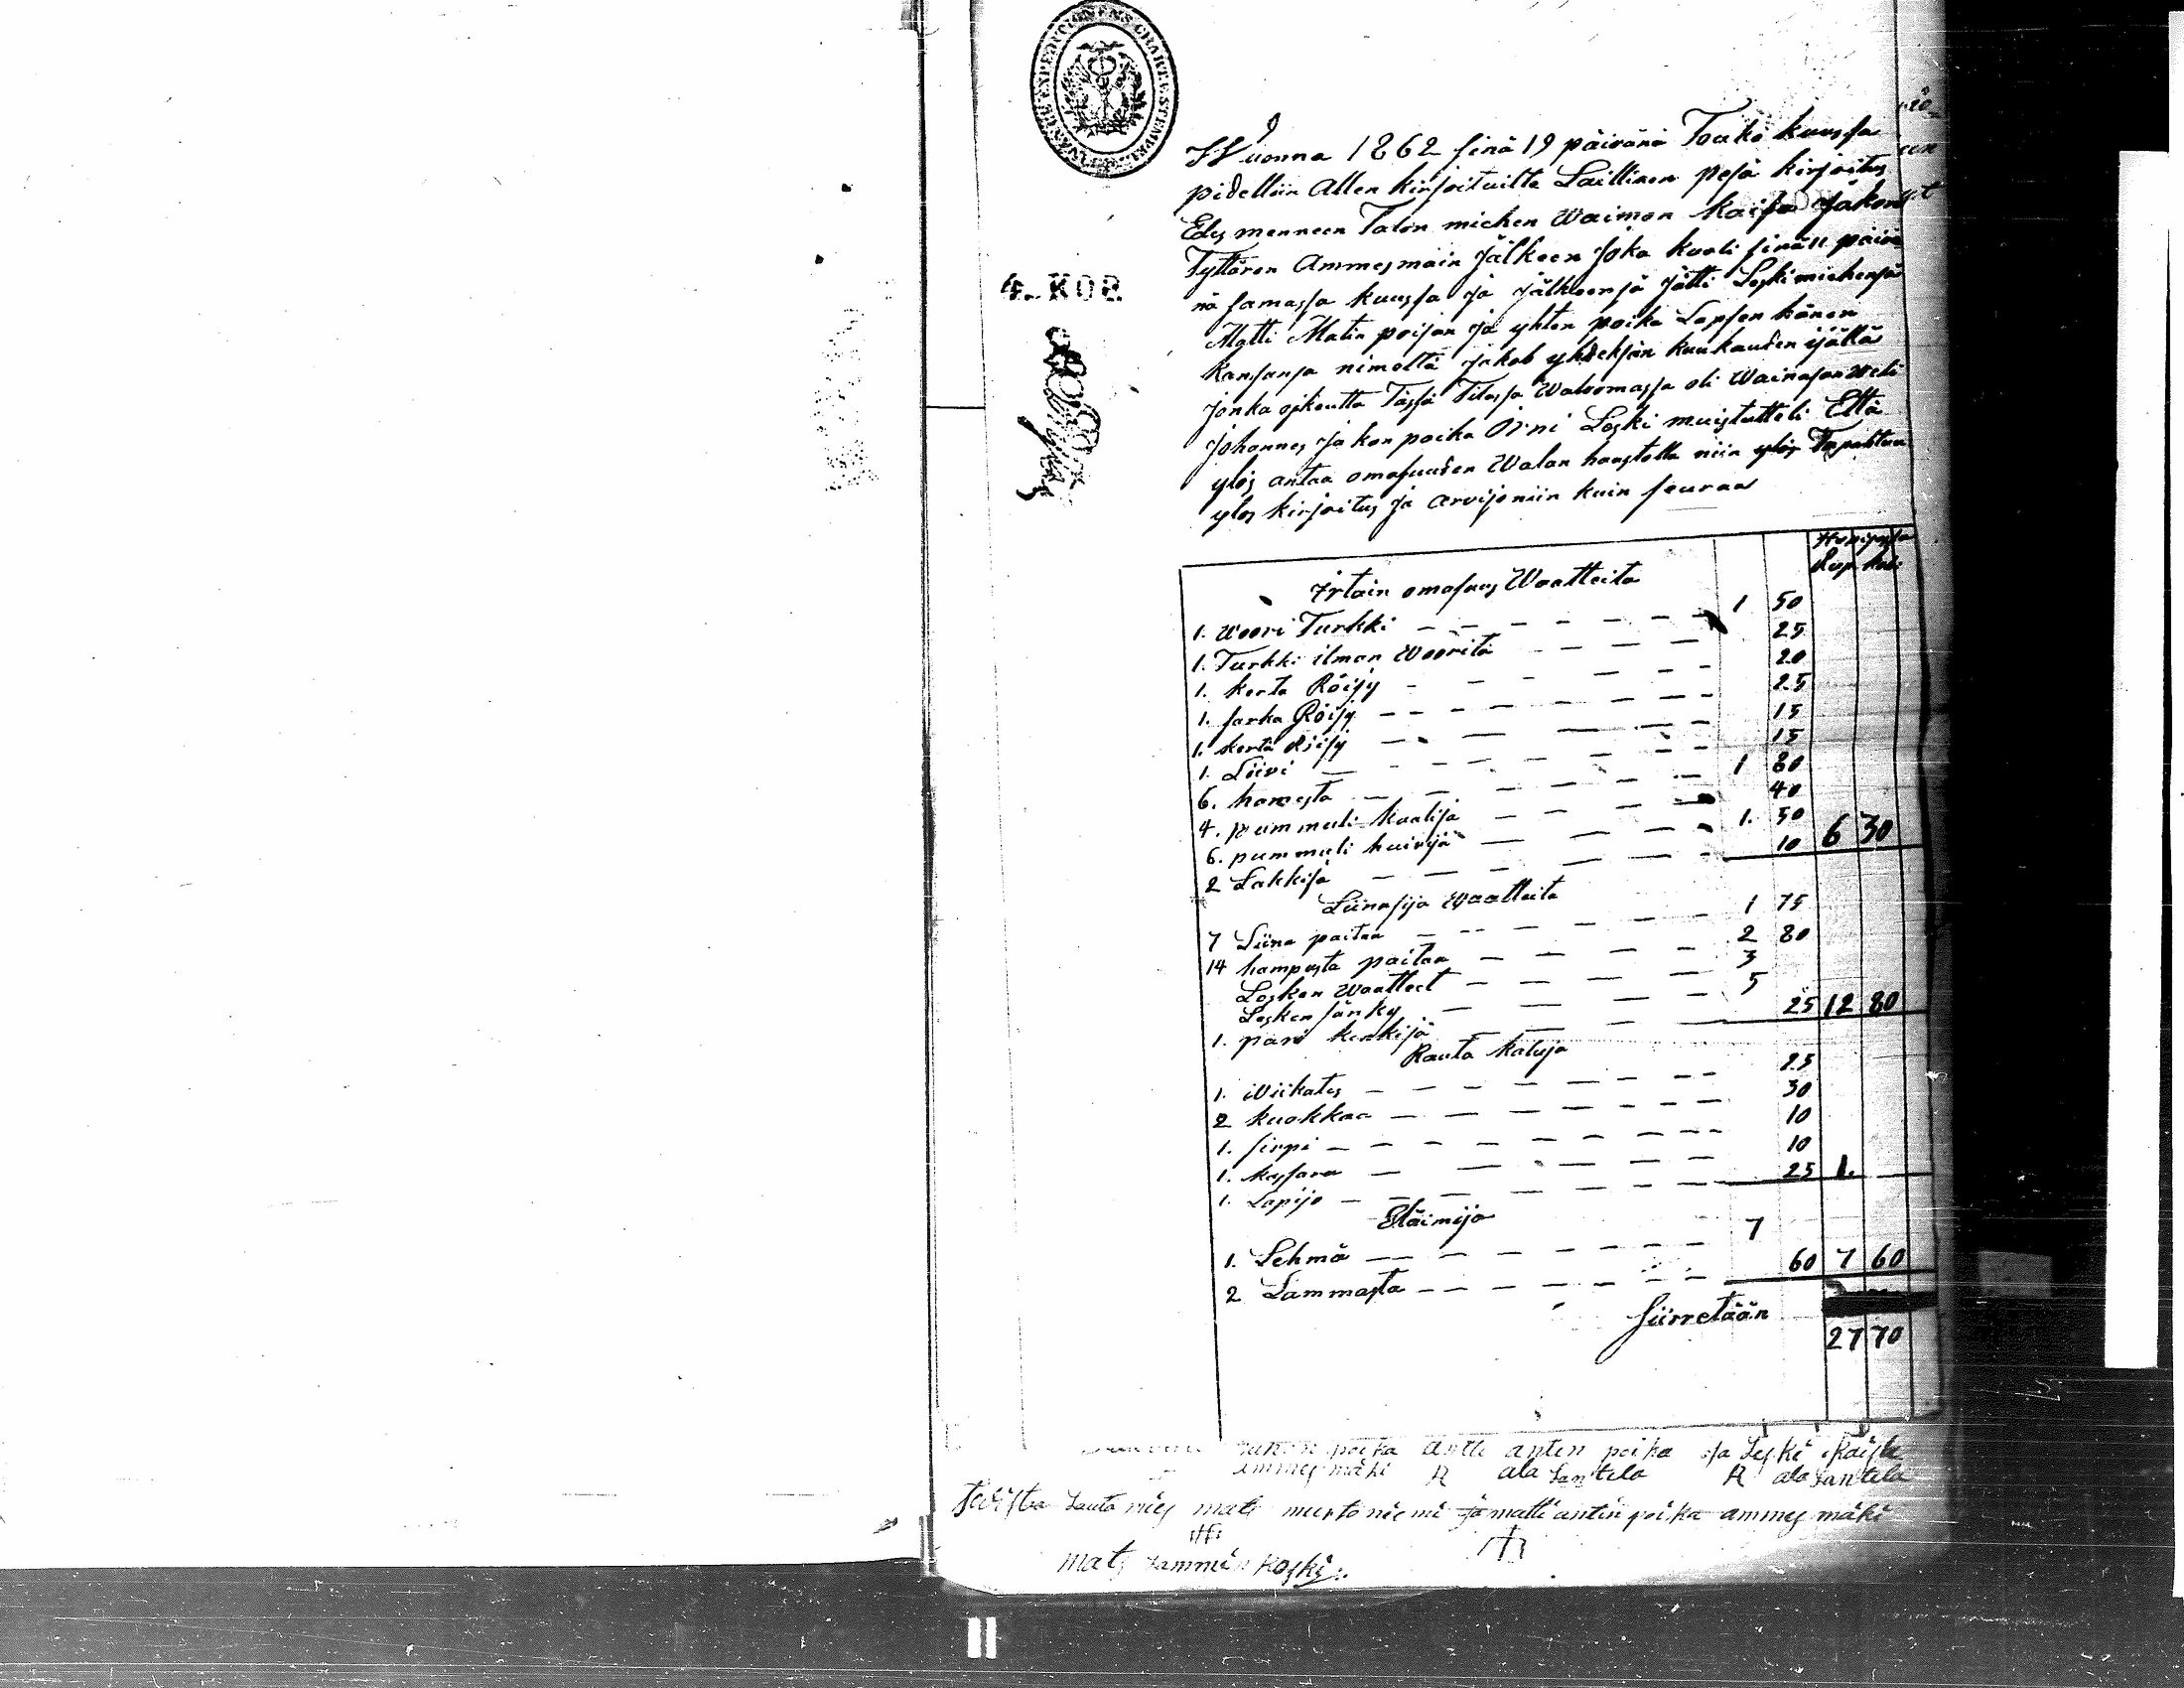 Wuonna 1862 sinä 19 päivänä Touko kuussa
pidettiin Allen kirjoituilta Laillinen pesä kirjoitus
Edes menneen Talon miehen Waimon Kaisa Jakob
Tyttären Ammesmäin Jälkeen Joka kuoli sinä 11 päivä
nä samassa kuussa ja jälkeensä jätti Leskimiehensä
Matti Matin poijan ja yhten poika Lapsen hänen
kansansa nimeltä Jakob yhdeksän kuukauden ijällä
jonka oikeutta Tässä Tilassa Walvomassa oli Wainajan Weli
Johannes Jakon poika Orni Leski muistutteli Että
ylös antaa omasuuden Walan haastolla niin ylös Tapahtuu
ylos kirjoitus ja arvijo niin kuin seuraa
Hopiassa
Rup. Kop.
Irtain omasuus Waatteita
1. Woori Turkki 1 50
1. Turkki ilman Wooritä 25
1. kerta Röijy 20
1. sarka Röijy 25
1. kerta Röijy 15
1. Liivi 15
6. hamesta 1 80
4. pummuli kaalija 40
6. pummuli huivija 1. 50
2 Lakkija 10 6 30
Liinasija Waatteita
7 Liina paitaa 1 75
14 hampusta paitaa 2 80
Lesken Waatteet 3
Lesken sänky 5
1. pari kenkijä 25 12 80
Rauta kaluja
1. Wiikates 25
2 kuokkaa 30
1. sirpi 10
1. kassara 10
1. Lapijo 25 1.
Eläimijo
1. Lehmä 7
2 Lammasta 60 7 60
siirretään
27 70
poika antti antin poika ja Leski Kaisa
ammesmäki A ala Santela A ala Santela
Lauta mies mati murto niemi ja matti antin poika ammesmäki
mats Lammin koski.
4. KOP.